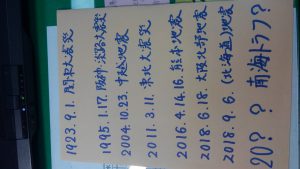 1923.9.1. 関東大震災
1995.1.17. 阪神・淡路大震災
2004.10.23. 中越地震
2011.3.11. 東北大震災
2016.4.14.16. 熊本地震
2018.6.18. 大阪北部地震
2018.9.6. (北海道)地震
20?? ? 南海トラフ?